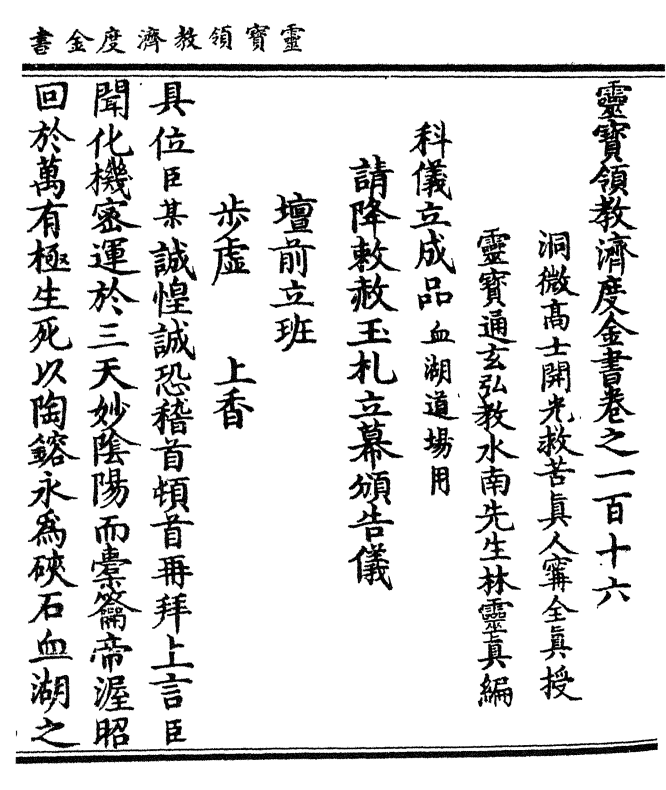 靈寶領教濟度金書
靈寶領教濟度金書卷之一百十六
洞微高士開光救苦眞人寗全眞授
靈寶通玄弘教水南先生林靈眞編
科儀立成品血湖道場用
請降敕赦玉札立幕頒告儀
壇前立班
步虛 上香
具位臣某誠惶誠恐稽首頓首再拜上言臣
聞化機密運於三天妙陰陽而橐籥帝渥昭
回於萬有極生死以陶鎔永爲硤石血湖之